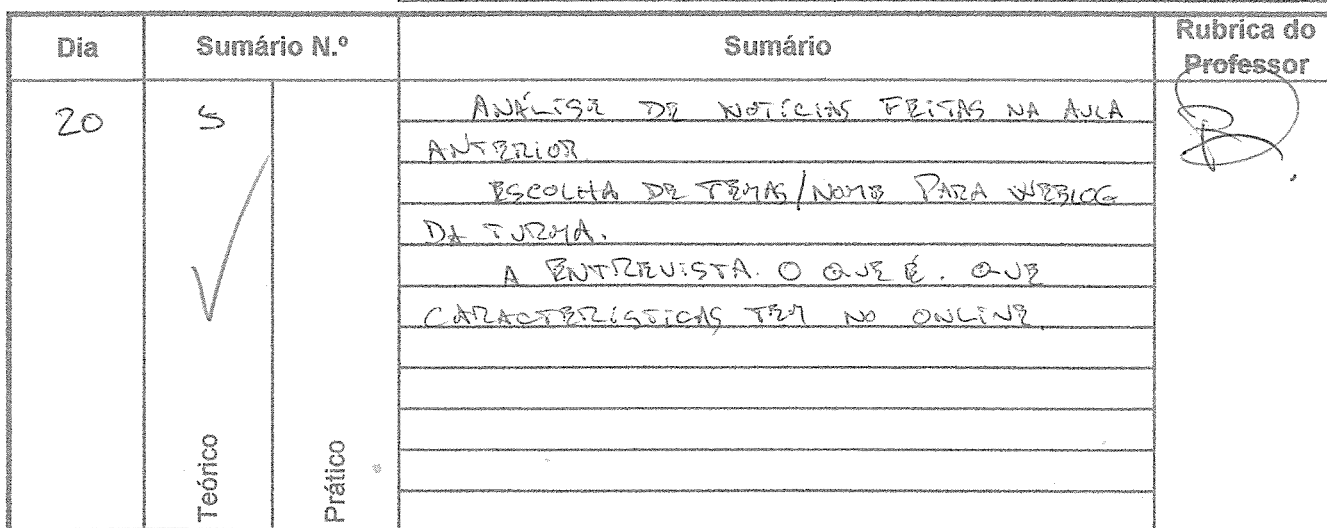 Dia
Sumário N.º
Sumário
Rubrica do
Professor
20
5
ANÁLISE DE NOTÍCIAS FEITAS NA AULA
ANTERIOR
ESCOLHA DE TEMAS/NOME PARA WEBLOG
DA TURMA.
A ENTREVISTA. O QUE É. QUE
CARACTERÍSTICAS TEM NO ONLINE.
Teórico
Prático